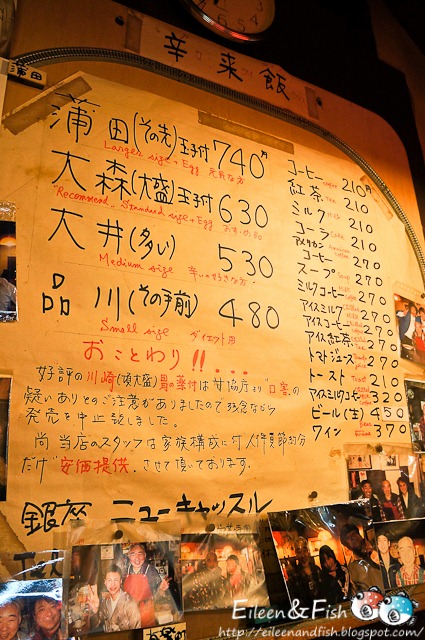 辛来飯
蒲田
蒲田(その先)玉子付 740円
Larger size + Egg
大森(大盛)玉子付 630
"Recommend" Standard size + Egg
大井(多い) 530
Medium size 辛いの好きな方
品川(その手前) 480
Small size ダイエット用
おことわり!!...
好評の川崎(頃大盛)胃の薬付は
疑いありとのご注意がありましたので残念ながら
発売を中止致しました。
尚当店のスタッフは家族構成に付人件費節約分
だけ"安価提供"させて頂いております。
銀座 ニューキャッスル
コーヒー 210円
紅茶 Tea 210
ミルク 210
コーラ 210
アメリカンコーヒー 270
スープ 270
ミルクコーヒー 270
アイスミルク 270
アイスコーヒー 270
アイス紅茶 270
トマトジュース 270
トースト 210
アイスミルクコーヒー 320
ビール(生) 450
ワイン 370
Eileen&Fish
http://eileenfish.blogspot.com/